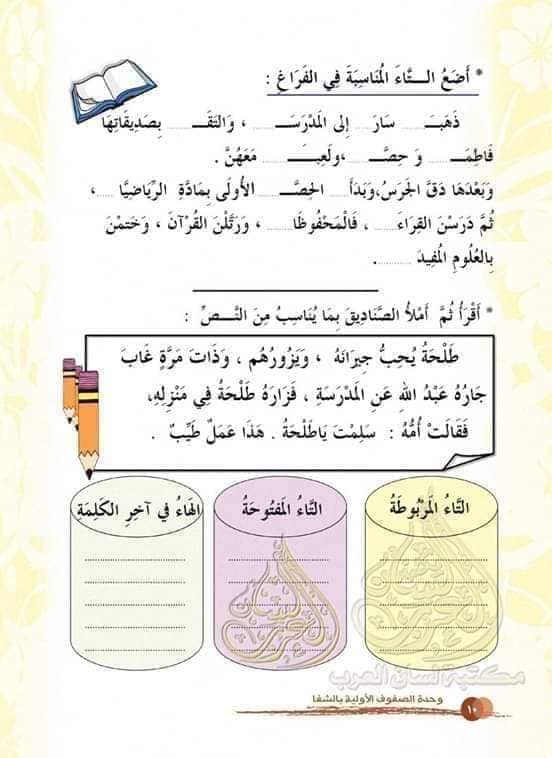 * أَضَعُ الــتَّاءَ المُنَاسِبَةَ فِي الفَرَاغِ :
ذَهَبَـ ..... سَارَ ..... إِلى المَدْرَسَـ ..... ، وَالتَقَـ ..... بِصَدِيقَاتِهَا
فَاطِمَـ ..... وَ حِصَّـ ..... ،وَلَعِبَـ ..... مَعَهُنَّ .
وَبَعْدَهَا دَقَّ الجَرَسُ،وَبَدَأَ ..... الحِصَّـ ..... الأُولَى بِمَادَّةِ الرِّيَاضِيَّا ..... ،
ثُمَّ دَرَسْنَ القِرَاءَ ..... ، فَالْمَحْفُوظَا ..... ، وَرَتَّلْنَ القُرْآنَ ، وَخَتَمْنَ
بِالعُلُومِ المُفِيدَ .....
* أَقْرَأُ ثُمَّ أَمْلأُ الصَّنَادِيقَ بِمَا يُنَاسِبُ مِنَ النَّـــصِّ :
طَلْحَةُ يُحِبُّ جِيرَانَهُ ، وَيَزُورُهُم ، وَذَاتَ مَرَّةٍ غَابَ
جَارُهُ عَبْدُ اللهِ عَنِ المَدْرَسَةِ ، فَزَارَهُ طَلْحَةُ فِي مَنْزِلِهِ،
فَقَالَتْ أُمُّهُ : سَلِمْتَ يَاطَلْحَةُ . هَذَا عَمَلٌ طَيِّبٌ .
التَّاءُ المَرْبُوطَةُ
التَّاءُ المَفْتُوحَةُ
الهَاءُ فِي آخِرِ الكَلِمَةِ
مكتبة لسان العرب
وحدة الصفوف الأولية بالشفا
١٠